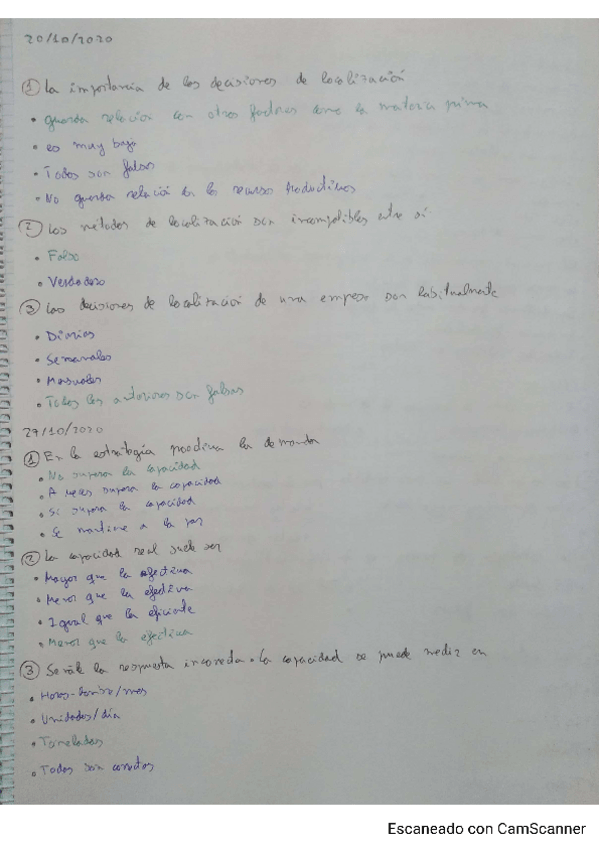 20/10/2020
① La importancia de las decisiones de localización
• guarda relación con otros factores como la materia prima
• es muy baja
• Todas son falsas
• No guarda relación con los recursos productivos
② Los métodos de localización son incompatibles entre sí
• Falso
• Verdadero
③ Las decisiones de localización de una empresa son habitualmente
• Diarias
• Semanales
• Mensuales
• Todas las anteriores son falsas
27/10/2020
① En la estrategia proactiva la demanda
• No supera la capacidad
• A veces supera la capacidad
• Si supera la capacidad
• Se mantiene a la par
② La capacidad real suele ser
• Mayor que la efectiva
• Menor que la efectiva
• Igual que la eficiente
• Menor que la efectiva
③ Señale la respuesta incorrecta. La capacidad se puede medir en
• Horas-hombre/mes
• Unidades/día
• Toneladas
• Todas son correctas
Escaneado con CamScanner